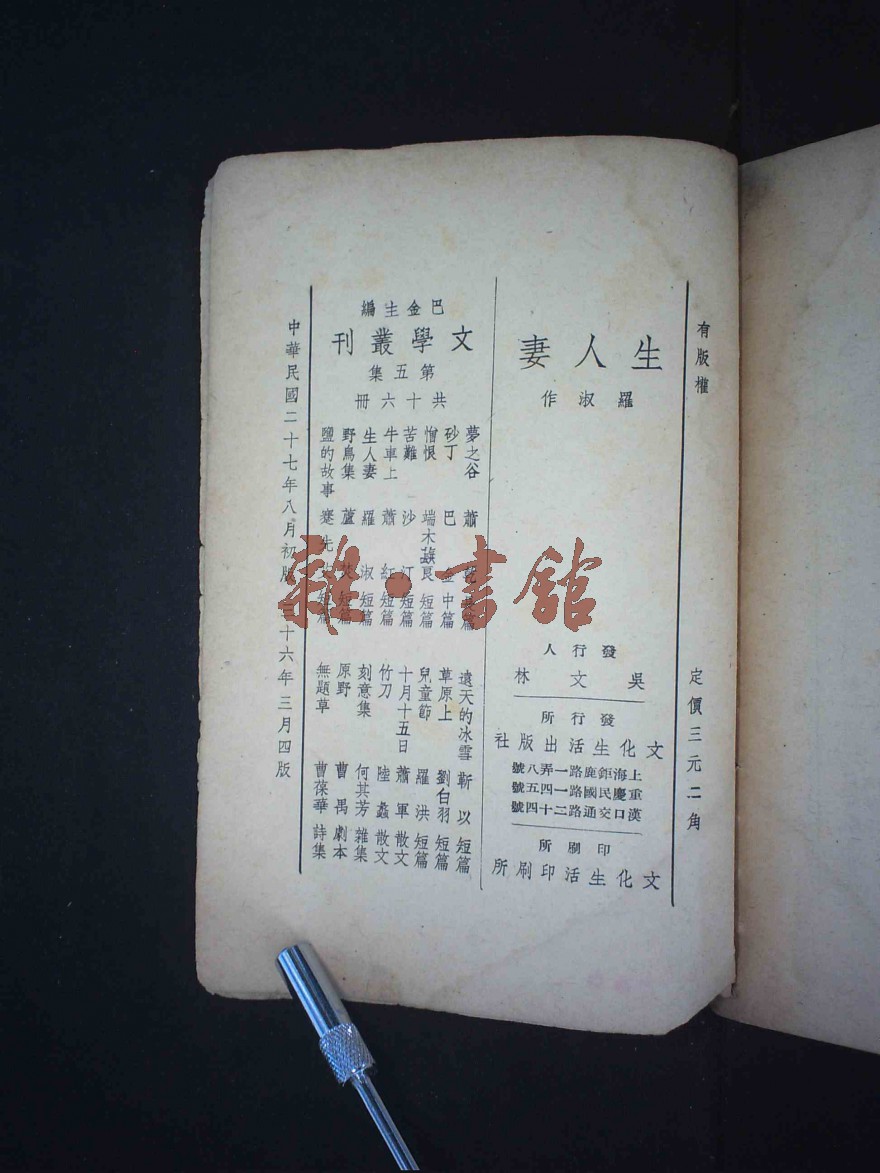 有版權
定價三元二角
生人妻
羅淑作
發行人
吳文林
發行所
文化生活出版社
上海鉅鹿路一弄八號
重慶民國路一四五號
漢口交通路三十四號
印刷所
文化生活印刷所
巴金主編
文學叢刊
第五集
共十六冊
夢之谷 蕭 篇
砂丁 巴金 中篇
憎恨 端木蕻良 短篇
苦難 沙汀 短篇
牛車上 蕭紅 短篇
生人妻 羅淑 短篇
野鳥集 蘆焚 短篇
鹽的故事 蹇先艾 短篇
遠天的冰雪 靳以 短篇
草原上 劉白羽 短篇
兒童節 羅洪 短篇
十月十五日 蕭軍 散文
竹刀 陸蠡 散文
刻意集 何其芳 雜集
原野 曹禺 劇本
無題草 曹葆華 詩集
中華民國二十七年八月初版 三十六年三月四版
雜·書館